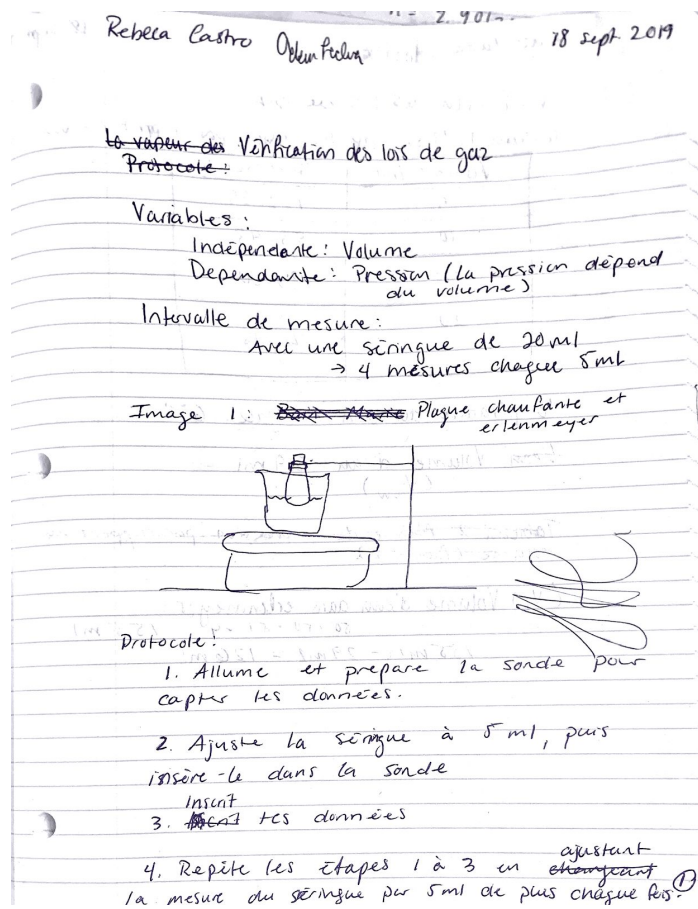 n = 2.901
Rebeca Castro
18 sept. 2019
La vapeur des Vérification des lois de gaz
Protocole :
Variables :
Indépendante : Volume
Dependante : Pression (La pression dépend
du volume)
Intervalle de mesure :
Avec une séringue de 20ml
→ 4 mesures chaque 5ml
Image 1 : Bain Marie Plaque chaufante et
erlenmeyer
Protocole :
1. Allume et prepare la sonde pour
capter tes données.
2. Ajuste la séringue à 5 ml, puis
insère-le dans la sonde
Inscrit
3. tes données
ajustant
4. Repète les étapes 1 à 3 en changeant
la mesure du séringue par 5ml de plus chaque fois.
1